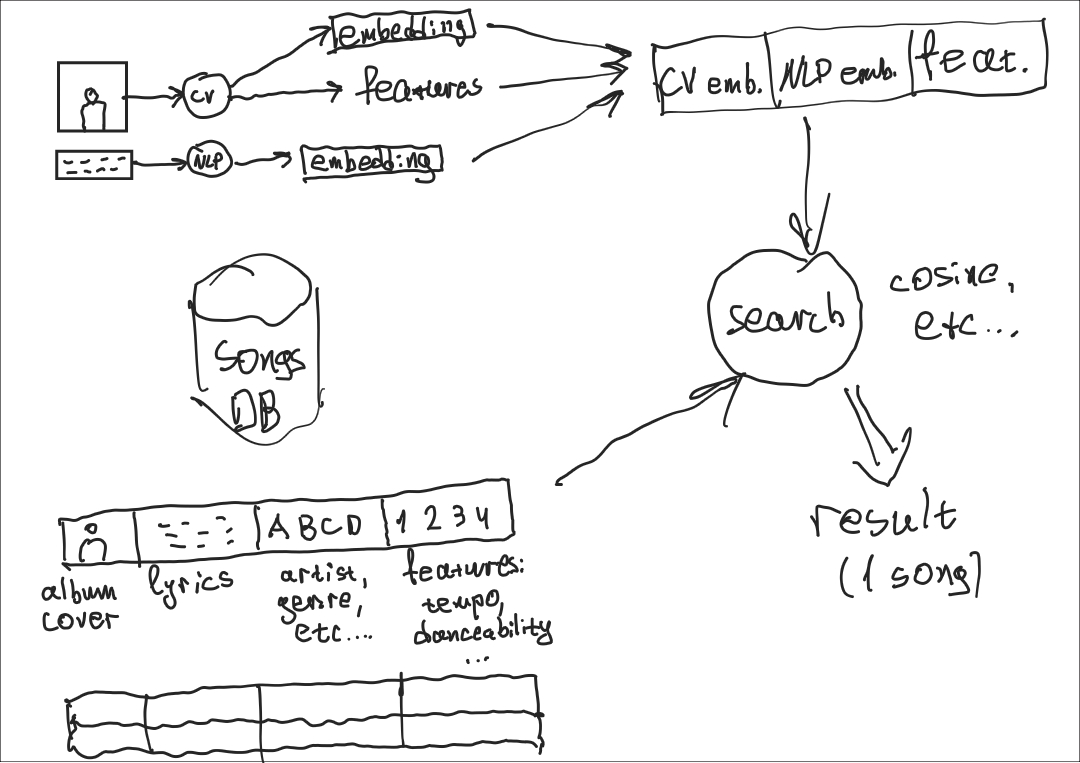 embedding
CV
features
NLP
embedding
CV emb.
NLP emb.
feat.
search
cosine,
etc...
result
(1 song)
Songs
DB
A B C D
1 2 3 4
album
cover
lyrics
artist,
genre,
etc...
features:
tempo,
danceability
...